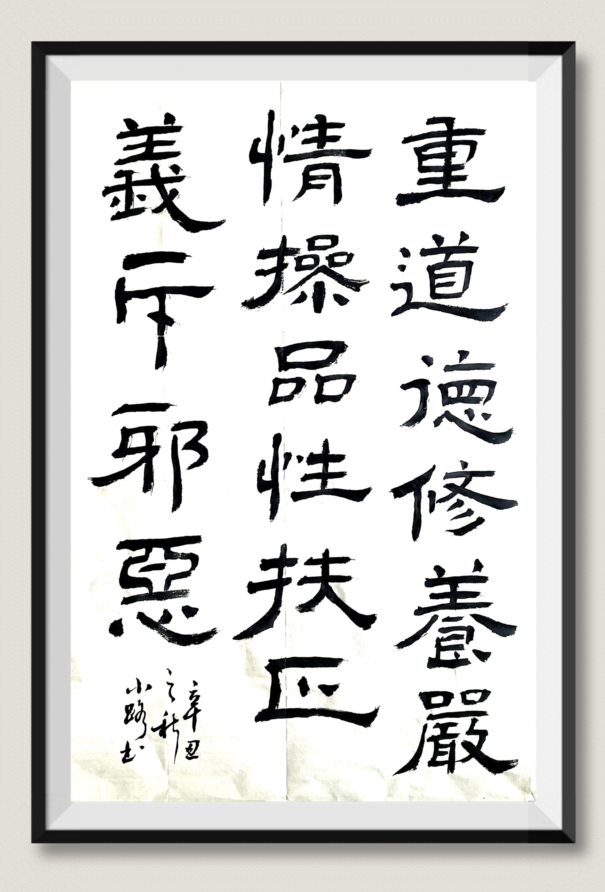 重道德修養嚴
情操品性扶正
義斥邪惡
辛丑
之秋
小路书